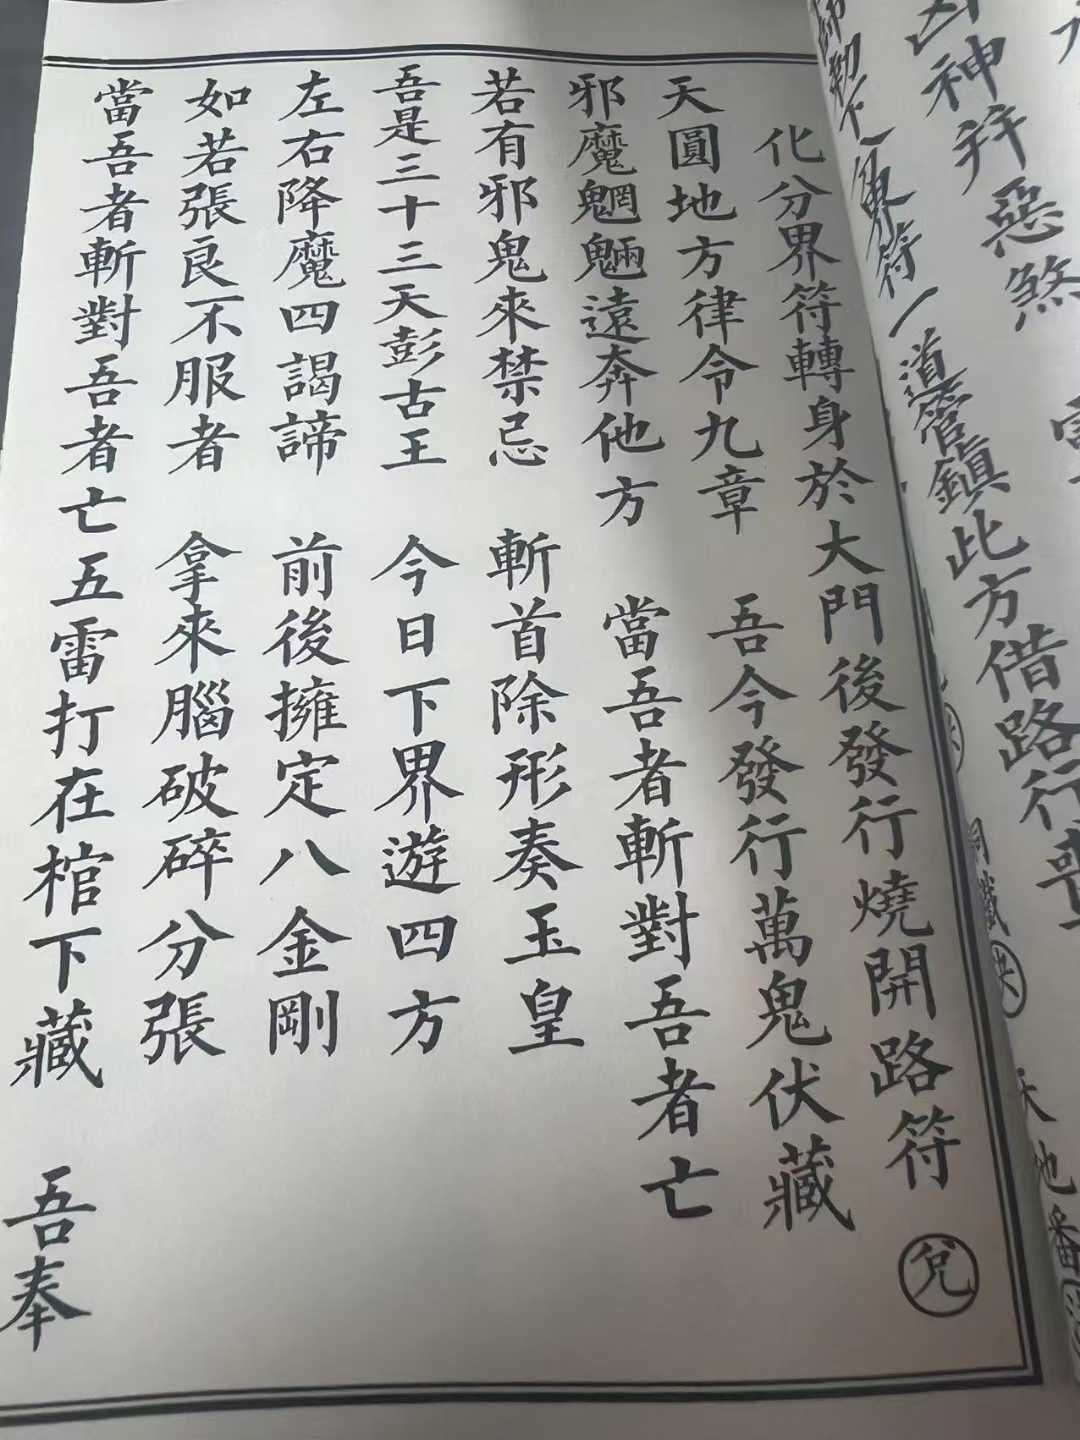 凶神并惡煞
下人界符一道管鎮此方借路行喪
化分界符轉身於大門後發行燒開路符 兌
天圓地方律令九章 吾今發行萬鬼伏藏
邪魔魍魎遠奔他方 當吾者斬對吾者亡
若有邪鬼來禁忌 斬首除形奏玉皇
吾是三十三天彭古王 今日下界遊四方
左右降魔四謁諦 前後擁定八金剛
如若張良不服者 拿來腦破碎分張
當吾者斬對吾者亡五雷打在棺下藏 吾奉